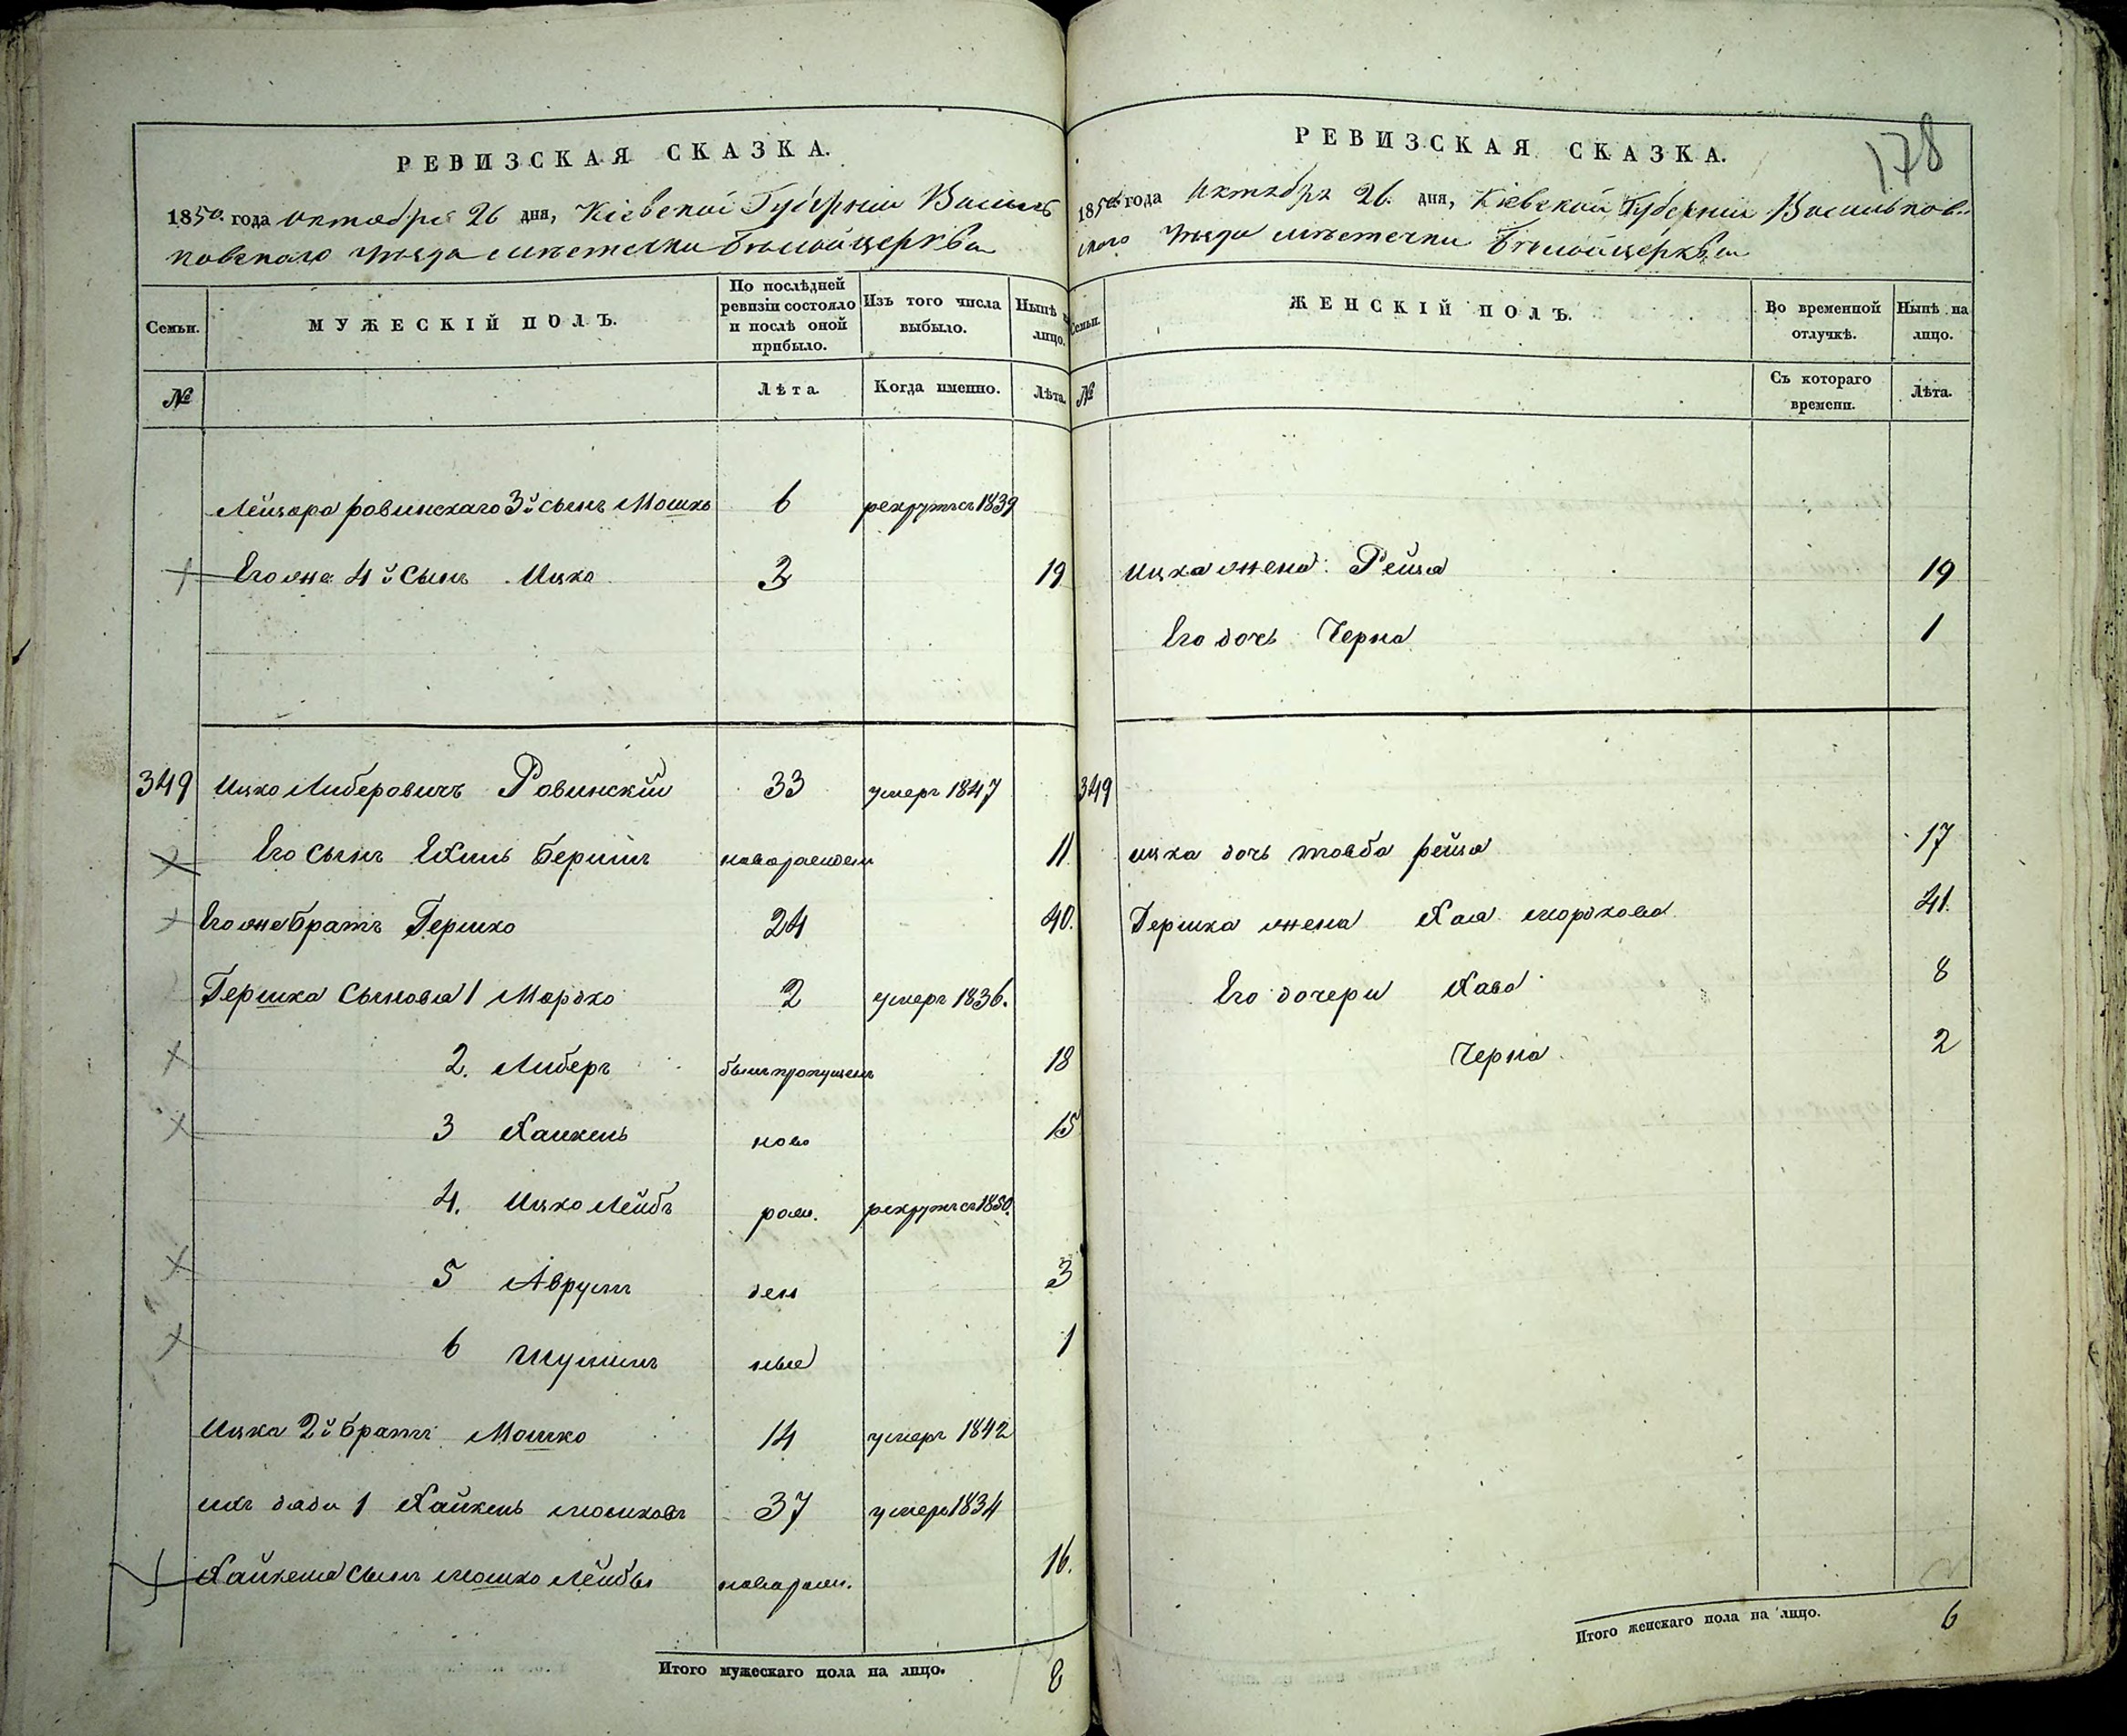 178
РЕВИЗСКАЯ СКАЗКА.
1850 года октября 26 дня, Кіевской Губерніи Василь
ковского уѣзда мѣстечка Бѣлойцеркви
Семьи.
МУЖЕСКІЙ ПОЛЪ.
По послѣдней ревизіи состояло и послѣ оной прибыло.
Изъ того числа выбыло.
Нынѣ на лицо.
№
Лѣта.
Когда именно.
Лѣта.
Лейзора Ровинскаго 3й сынъ Мошко 6 рекрутъ съ 1839
Его же 4й Сынъ Ицко 3 19
349 Ицко Либеровичъ Ровинскій 33 умеръ 1847
Его Сынъ Берышъ новорожден 11
Его же Братъ Гершко 24 40.
Гершка Сыновья 1 Мордко 2 умеръ 1836.
2. Либеръ былъ пропущенъ 18
3 Хаикель ново 15
4. Ицко Лейбъ рож. рекрутъ съ 1850.
5 Аврумъ ден 3
6 ные 1
Ицка 2й братъ Мошко 14 умеръ 1842
ихъ дядя 1 Хайкель Мошковъ 37 умеръ 1834
Хайкеля Сынъ Мошко Лейбы новорож. 16.
Итого мужескаго пола на лицо. 8
РЕВИЗСКАЯ СКАЗКА.
1850 года Октября 26. дня, Кіевской Губерніи Васильков-
ского уѣзда мѣстечка Бѣлойцеркви
Семьи.
ЖЕНСКІЙ ПОЛЪ.
Во временной отлучкѣ.
Нынѣ на лицо.
№
Съ котораго времени.
Лѣта.
Ицка жена Рейза 19
Его дочь Черна 1
349
Ицка дочь Товба Рейза 17
Гершка жена Хая Мордкова 41.
Его дочери Хава 8
Черна 2
Итого женскаго пола на лицо. 6